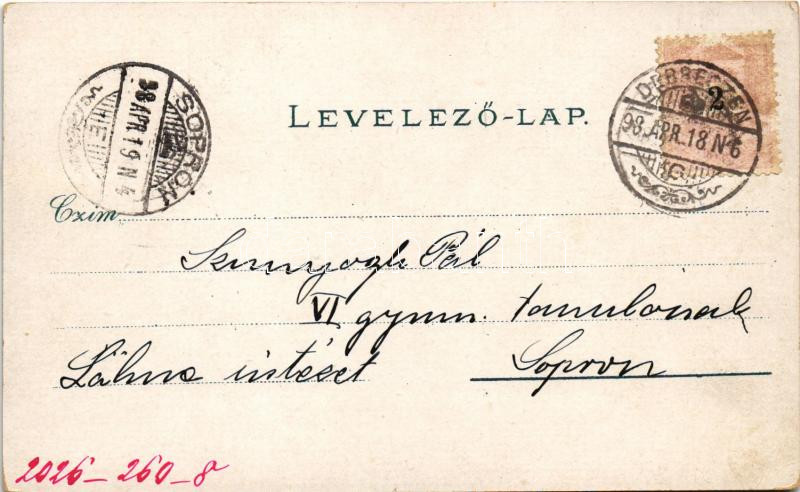 SOPRON
98 APR. 19 N 4
E
LEVELEZŐ-LAP.
2
DEBRECZEN
98.APR.18 N6
G
Czím
Szunyogh Pál
VI gymn. tanulónak
Lähne intézet
Sopron
2026-260-8